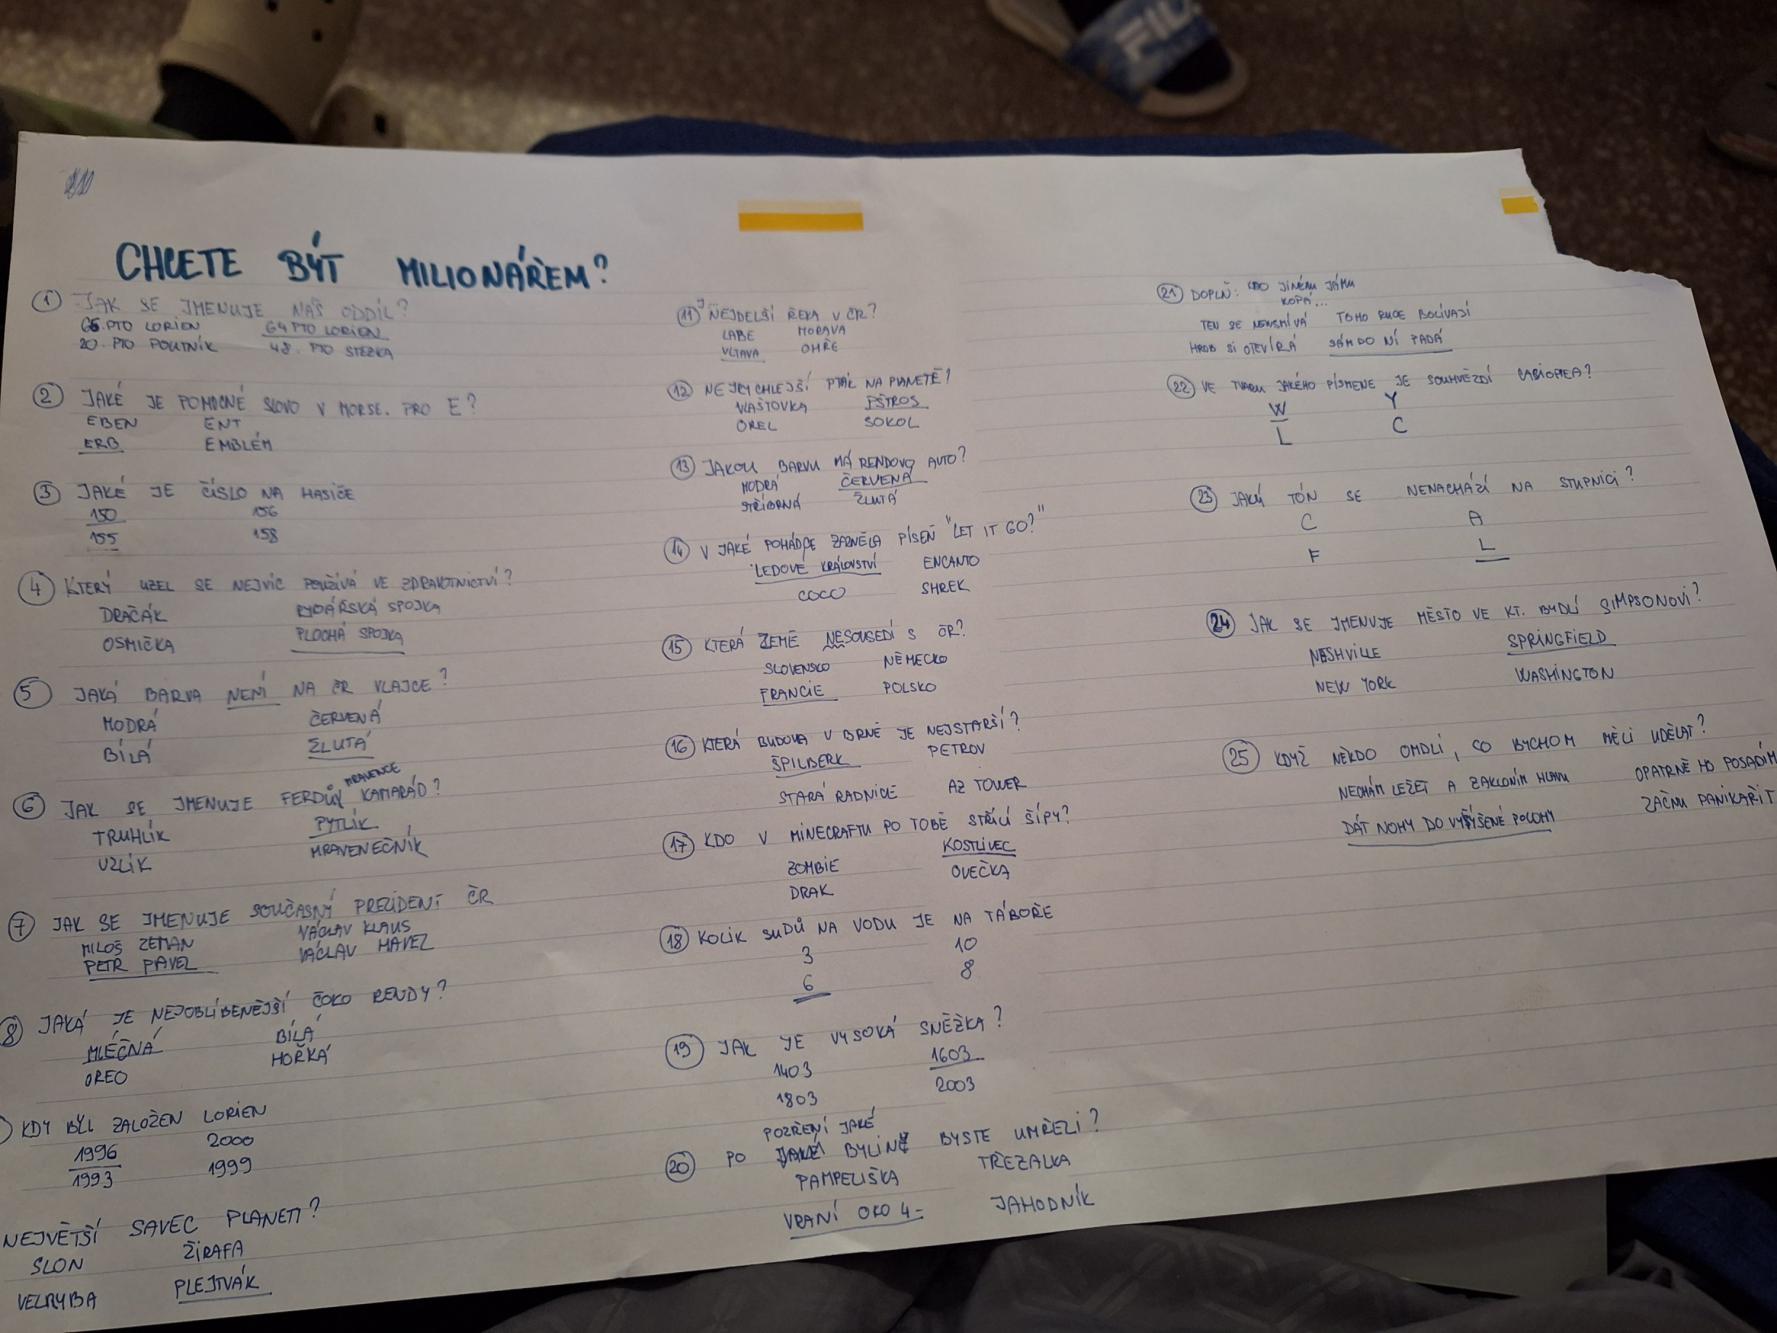 CHCETE BÝT MILIONÁŘEM?
1 JAK SE JMENUJE NÁŠ ODDÍL?
66. PTO LORIEN 64 PTO LORIEN
20. PTO POUTNÍK 48. PTO STEZKA
2 JAKÉ JE POMOCNÉ SLOVO V MORSE. PRO E?
EBEN ENT
ERB EMBLÉM
3 JAKÉ JE ČÍSLO NA HASIČE
150 156
155 158
4 KTERÝ UZEL SE NEJVÍC POUŽÍVÁ VE ZDRAVOTNICTVÍ?
DRAČÁK RYBÁŘSKÁ SPOJKA
OSMIČKA PLOCHÁ SPOJKA
5 JAKÁ BARVA NENÍ NA ČR VLAJCE?
MODRÁ ČERVENÁ
BÍLÁ ŽLUTÁ
MRAVENCE
6 JAK SE JMENUJE FERDŮV KAMARÁD?
TRUHLÍK PYTLÍK
UZLÍK MRAVENEČNÍK
7 JAK SE JMENUJE SOUČASNÝ PREZIDENT ČR
MILOŠ ZEMAN VÁCLAV KLAUS
PETR PAVEL VÁCLAV HAVEL
8 JAKÁ JE NEJOBLÍBENĚJŠÍ ČOKO RENDY?
MLÉČNÁ BÍLÁ
OREO HOŘKÁ
KDY BYL ZALOŽEN LORIEN
1996 2000
1993 1999
NEJVĚTŠÍ SAVEC PLANETY?
SLON ŽIRAFA
VELRYBA PLEJTVÁK
11 NEJDELŠÍ ŘEKA V ČR?
LABE MORAVA
VLTAVA OHŘE
12 NEJRYCHLEJŠÍ PTÁK NA PLANETĚ?
VLAŠTOVKA PŠTROS
OREL SOKOL
13 JAKOU BARVU MÁ RENDOVO AUTO?
MODRÁ ČERVENÁ
STŘÍBRNÁ ŽLUTÁ
14 V JAKÉ POHÁDCE ZAZNĚLA PÍSEŇ "LET IT GO?"
LEDOVÉ KRÁLOVSTVÍ ENCANTO
COCO SHREK
15 KTERÁ ZEMĚ NESOUSEDÍ S ČR?
SLOVENSKO NĚMECKO
FRANCIE POLSKO
16 KTERÁ BUDOVA V BRNĚ JE NEJSTARŠÍ?
ŠPILBERK PETROV
STARÁ RADNICE AZ TOWER
17 KDO V MINECRAFTU PO TOBĚ STŘÍLÍ ŠÍPY?
ZOMBIE KOSTLIVEC
DRAK OVEČKA
18 KOLIK SUDŮ NA VODU JE NA TÁBOŘE
3 10
6 8
19 JAK JE VYSOKÁ SNĚŽKA?
1403 1603
1803 2003
POZŘENÍ JAKÉ
20 PO BYLINY BYSTE UMŘELI?
PAMPELIŠKA TŘEZALKA
VRANÍ OKO 4- JAHODNÍK
21 DOPLŇ: KDO JINÉMU JÁMU
KOPÁ...
TEN SE NENSMÍVÁ TOHO RUCE BOLÍVAJÍ
HROB SI OTEVÍRÁ SÁM DO NÍ PADÁ
22 VE TVARU JAKÉHO PÍSMENE JE SOUHVĚZDÍ CASIOPEA?
W Y
L C
23 JAKÝ TÓN SE NENACHÁZÍ NA STUPNICI?
C A
F L
24 JAK SE JMENUJE MĚSTO VE KT. BYDLÍ SIMPSONOVI?
NESHVILLE SPRINGFIELD
NEW YORK WASHINGTON
25 KDYŽ NĚKDO OMDLÍ, CO BYCHOM MĚLI UDĚLAT?
NECHÁM LEŽET A ZAKLONÍM HLAVU OPATRNĚ HO POSADÍM
DÁT NOHY DO VYVÝŠENÉ POLOHY ZAČNU PANIKAŘIT
FILA